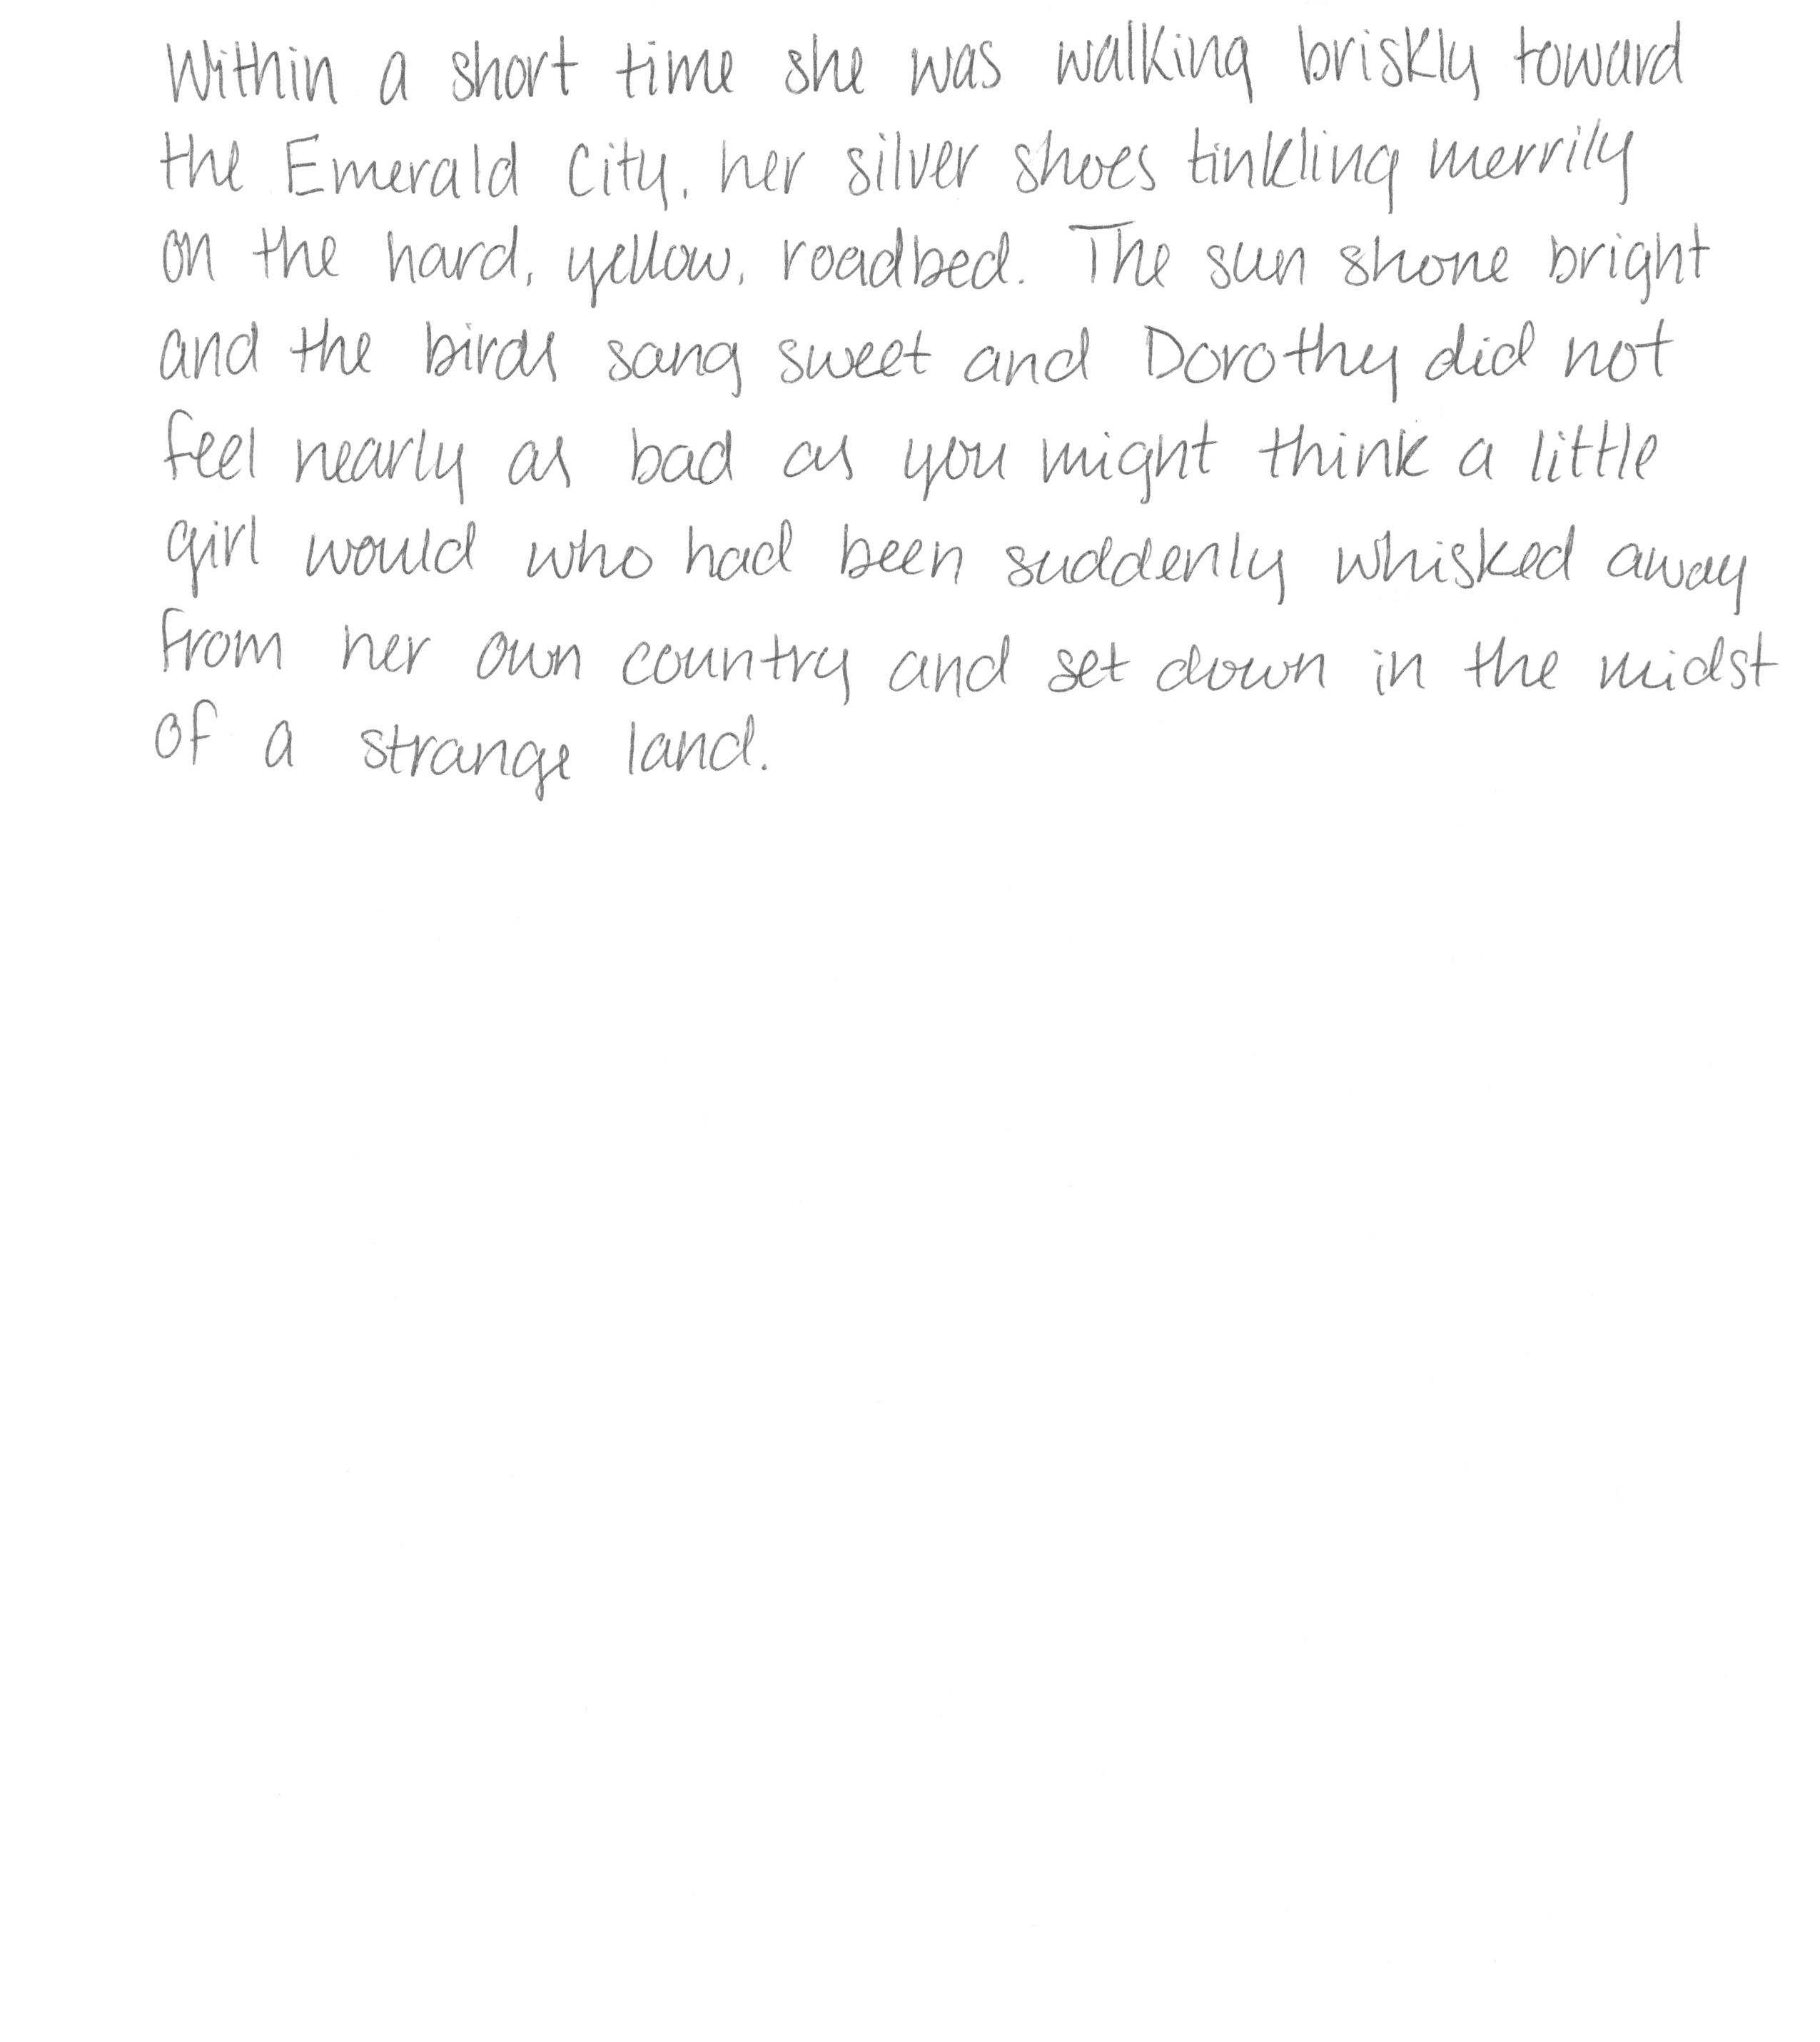 Within a short time she was walking briskly toward
the Emerald City, her silver shoes tinkling merrily
on the hard, yellow, roadbed. The sun shone bright
and the birds sang sweet and Dorothy did not
feel nearly as bad as you might think a little
girl would who had been suddenly whisked away
from her own country and set down in the midst
of a strange land.